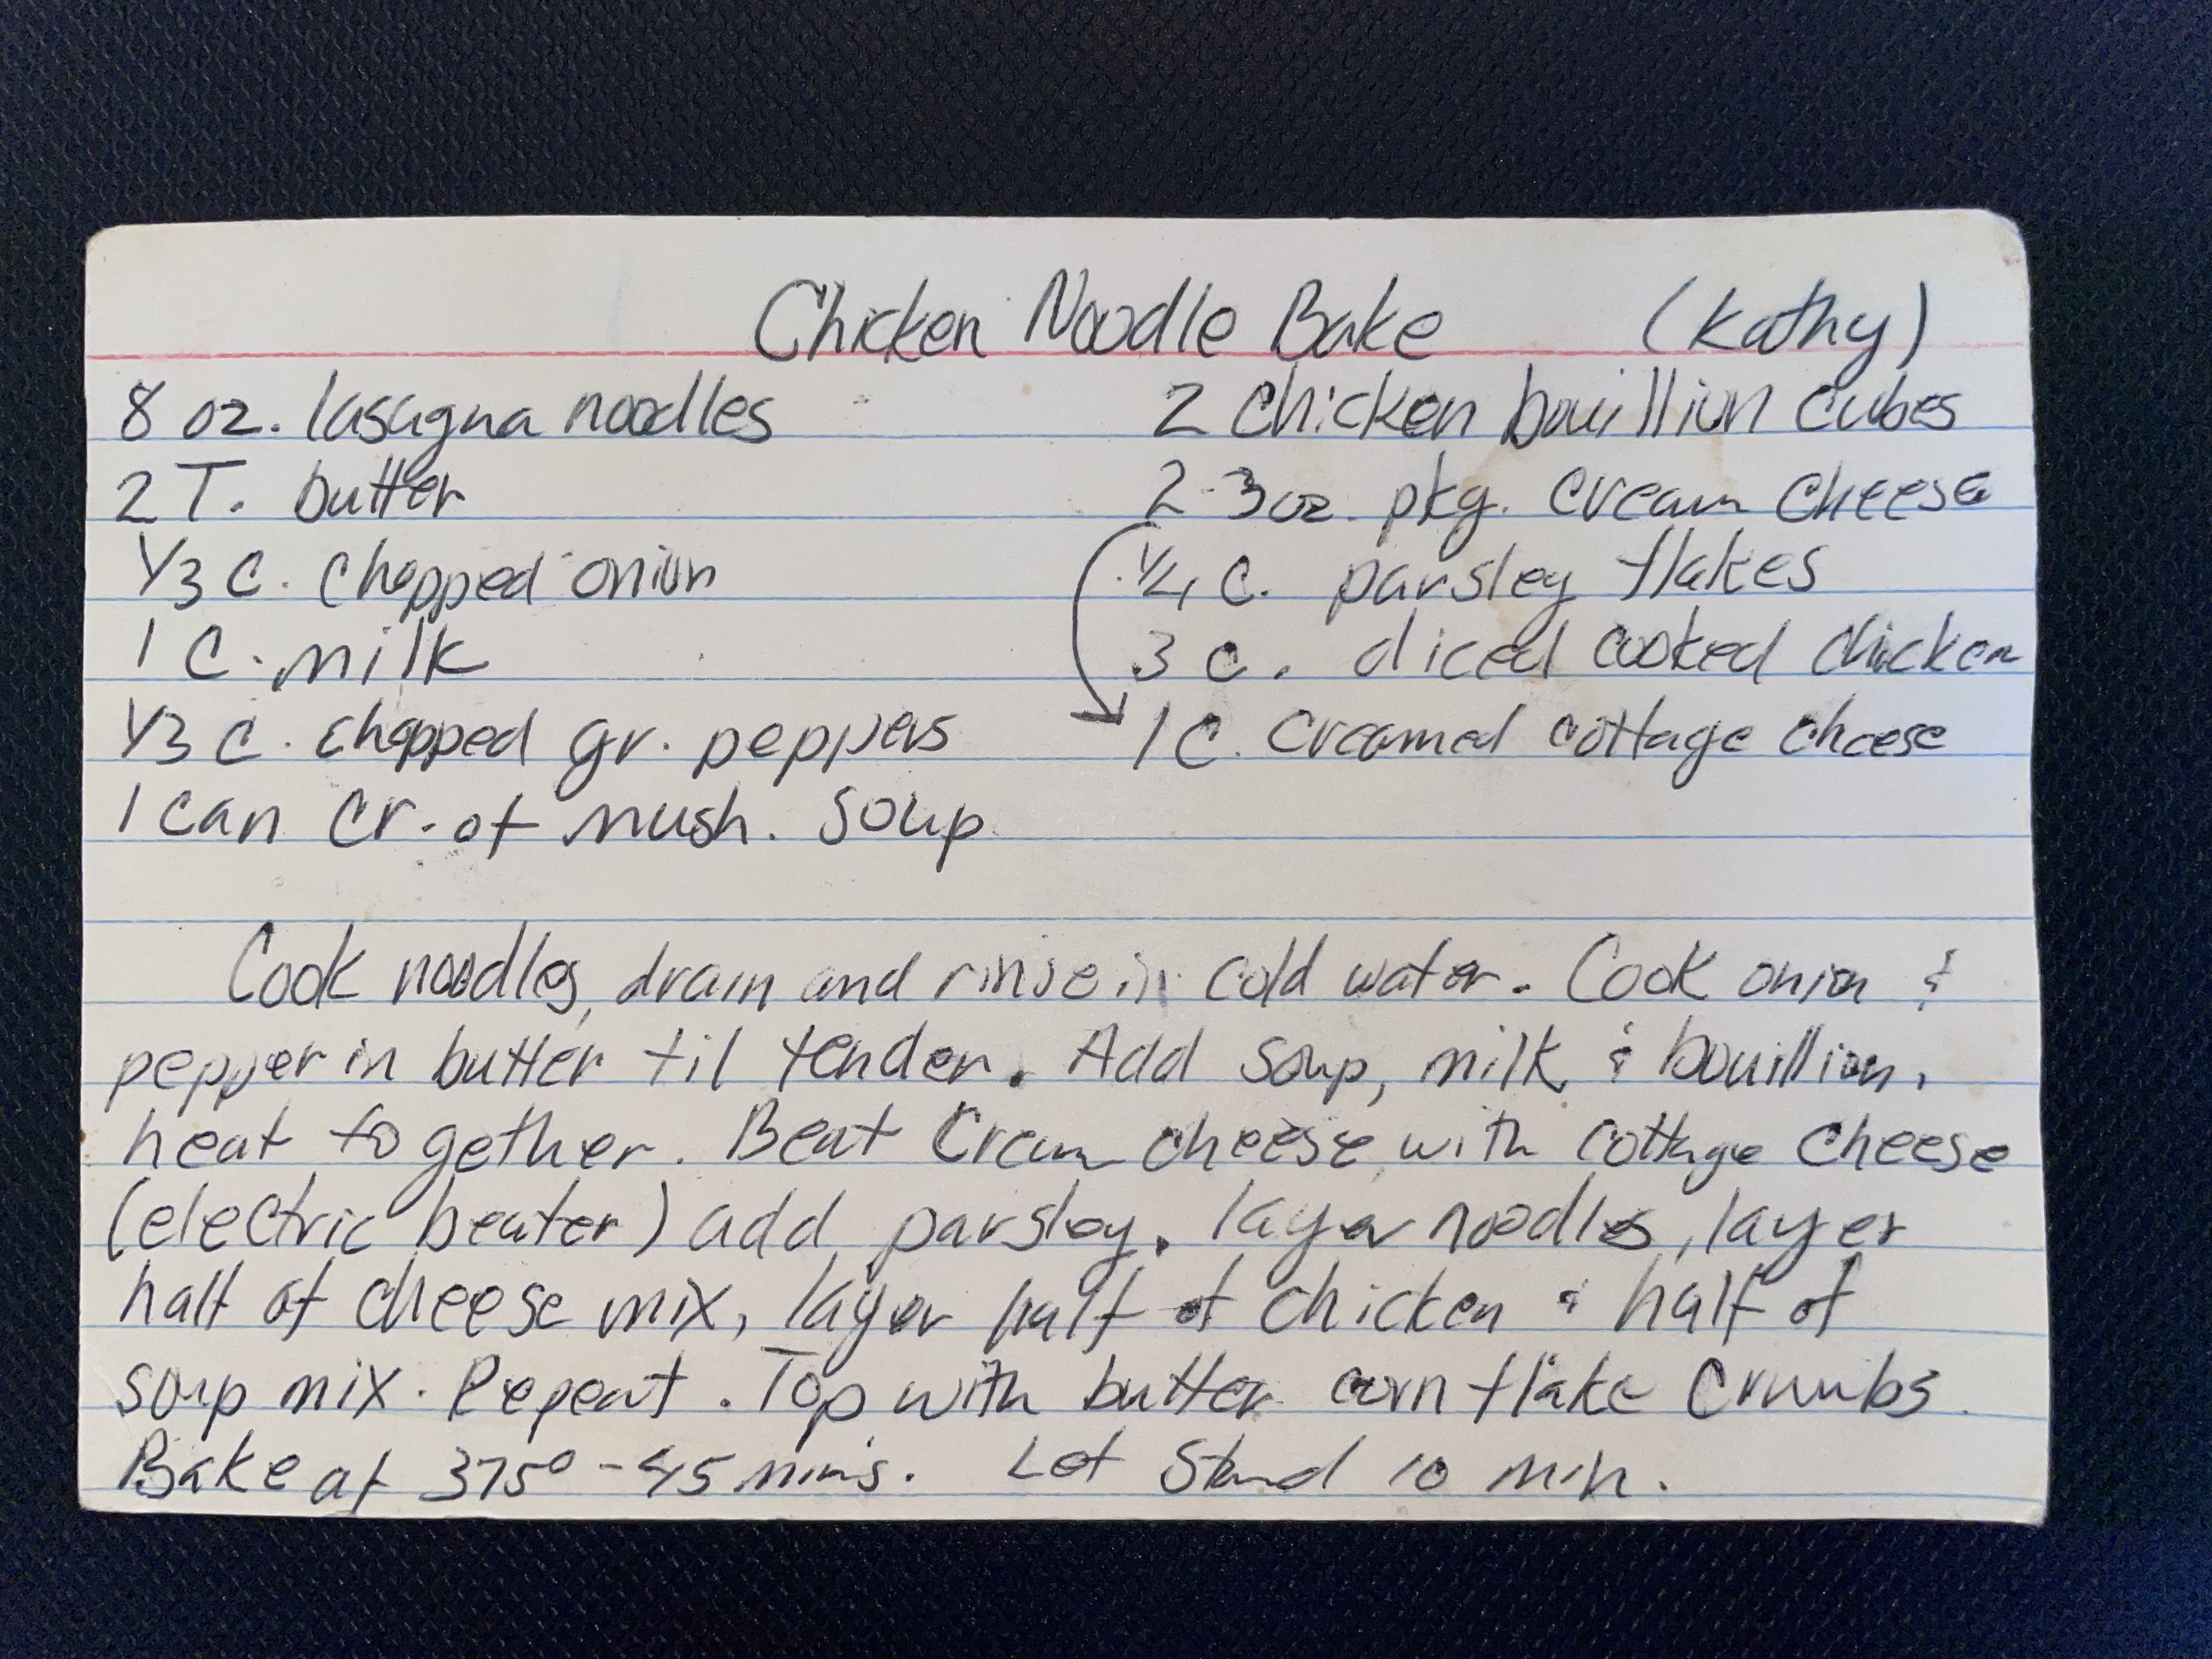 Chicken Noodle Bake (Kathy)
8 oz. lasagna noodles
2 T. butter
1/3 C. chopped onion
1 C. milk
1/3 C. chopped gr. peppers
1 can cr. of mush. soup
2 chicken bouillion cubes
2-3 oz. pkg. cream cheese
1/4 C. parsley flakes
3 C. diced cooked chicken
1 C. creamed cottage cheese
Cook noodles, drain and rinse in cold water. Cook onion &
pepper in butter til tender. Add soup, milk & bouillion,
heat together. Beat cream cheese with cottage cheese
(electric beater) add parsley. layer noodles, layer
half of cheese mix, layer half of chicken & half of
soup mix. Repeat. Top with butter corn flake crumbs.
Bake at 375° - 45 mins. Let Stand 10 min.